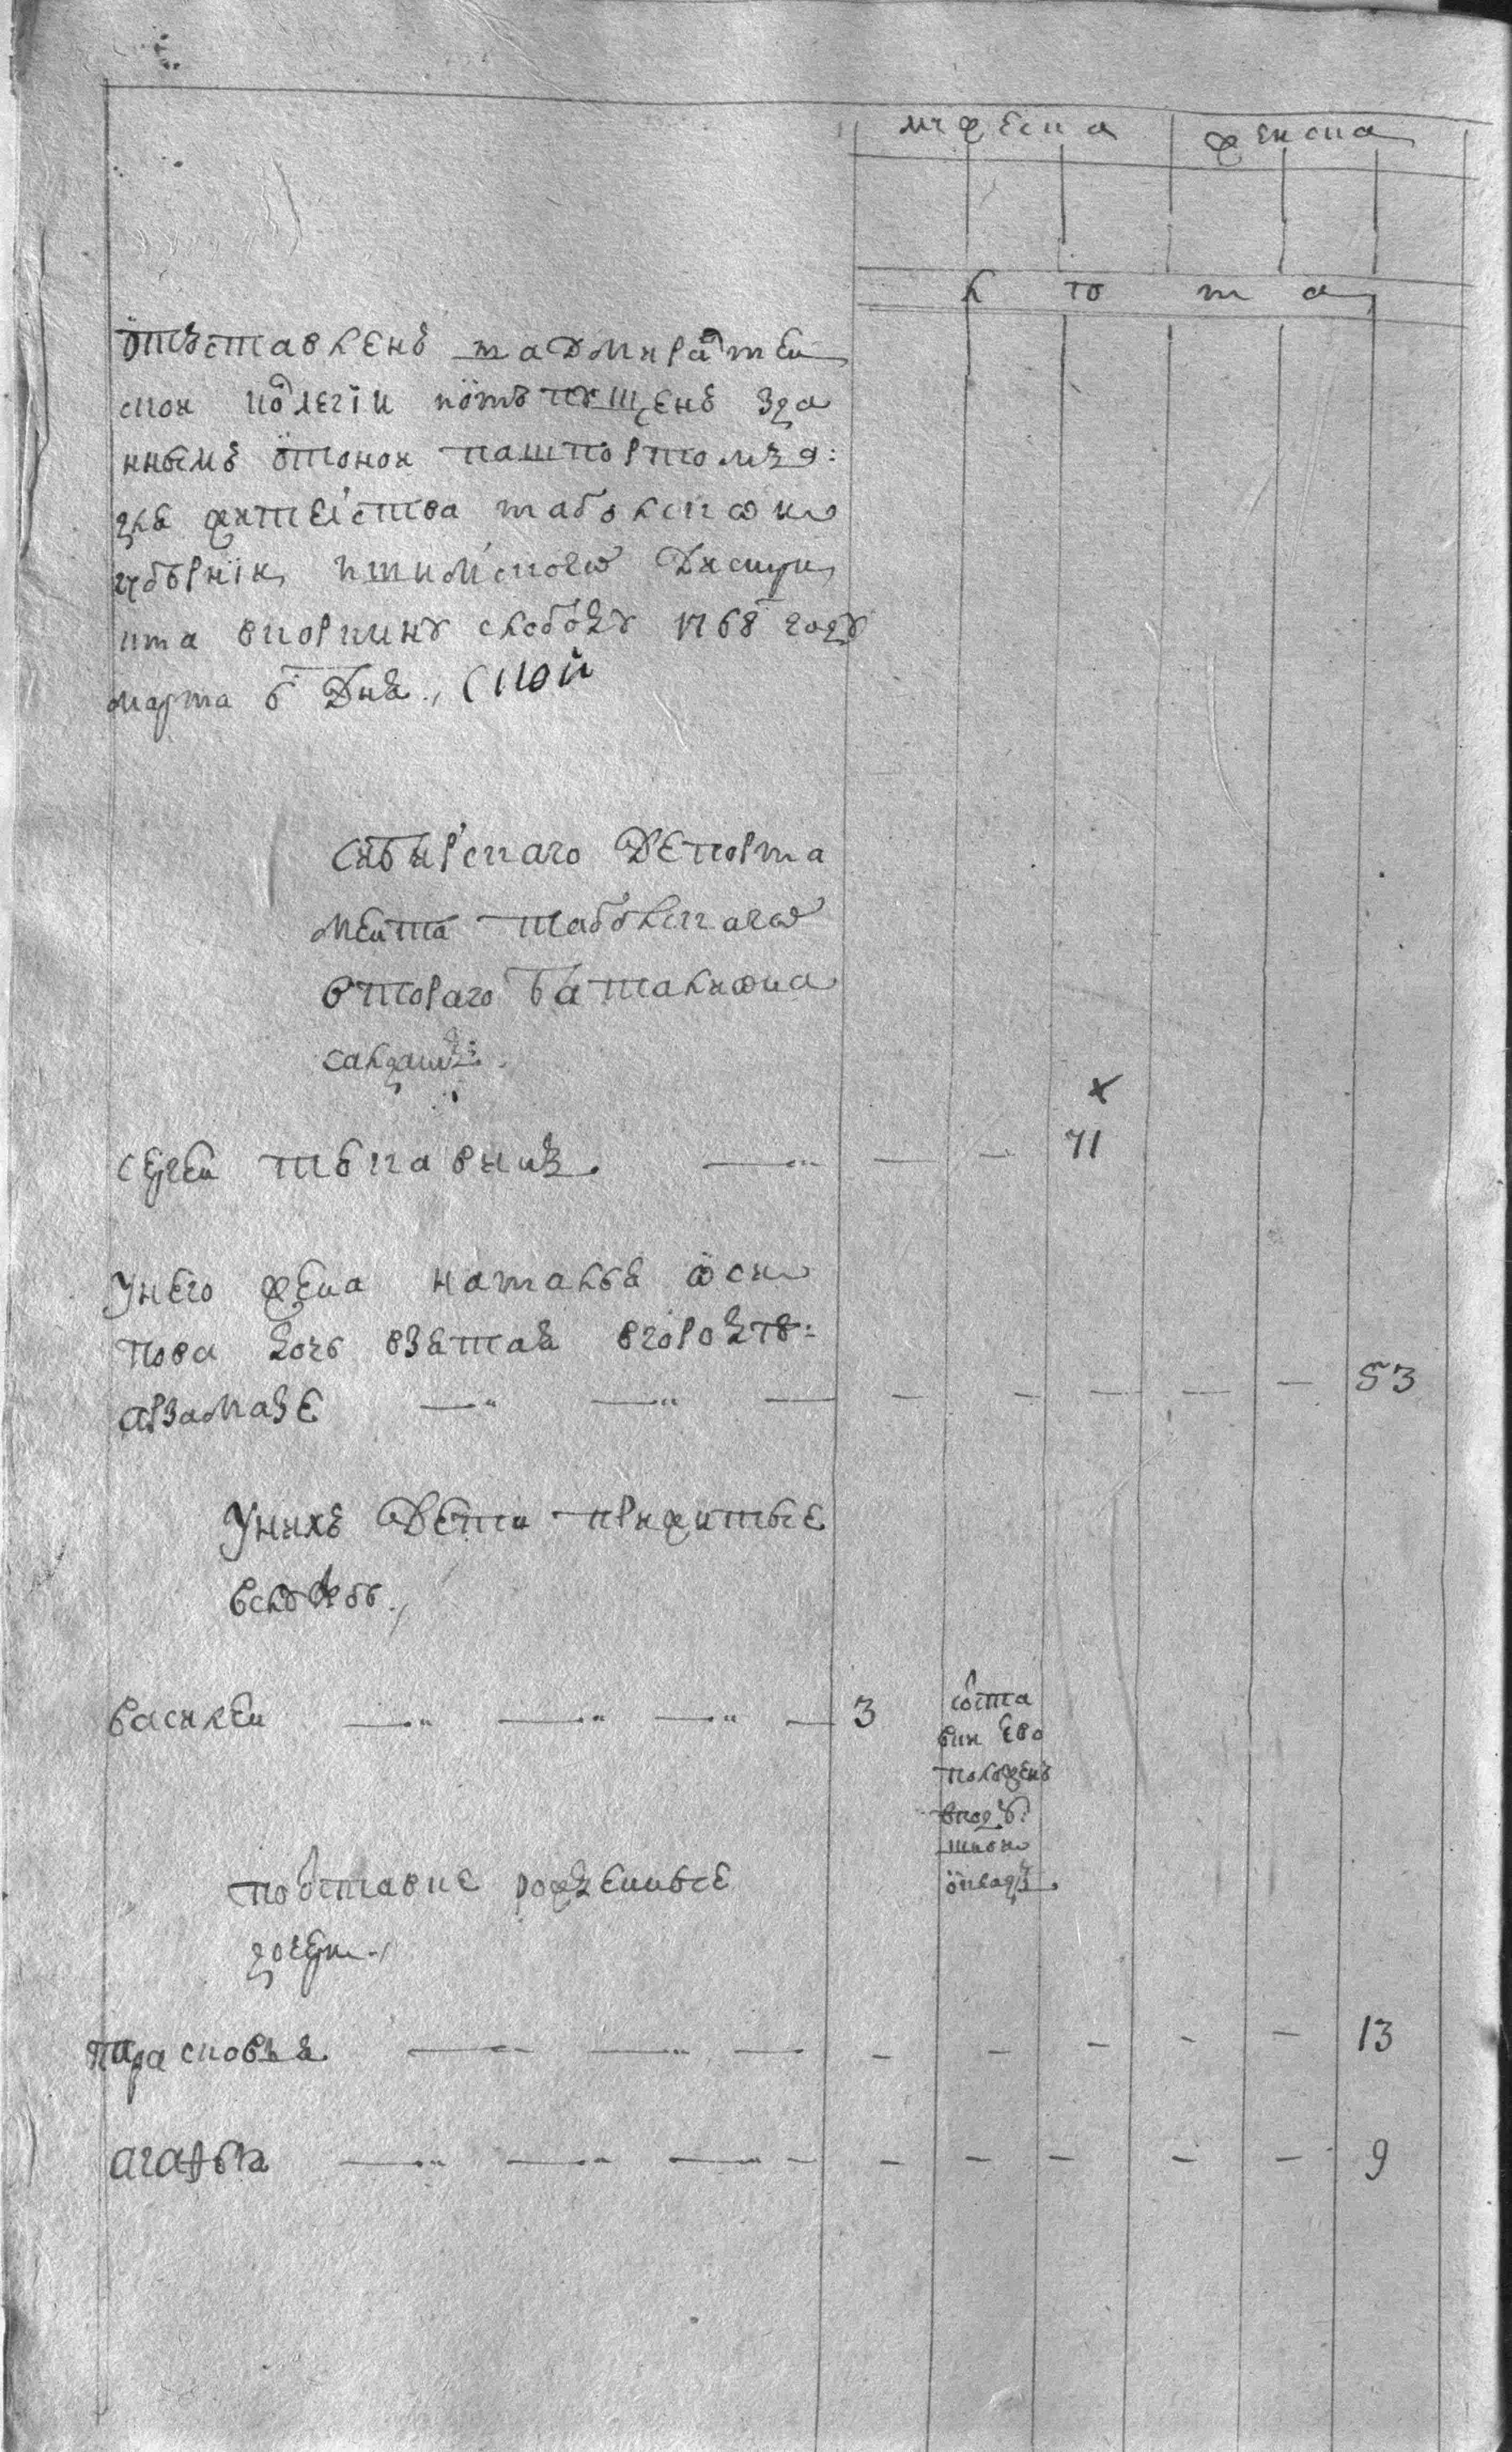 мужеска женска
л то т а
отъставленъ тадмиратей
ской колегіи иотъпущенъ зда
ннымъ отоной пашпортомъ д:
ля жителства таболской
губернiи, ишимского дистри
кта вкоркину слободу 1768 году
марта 6 дня., (кой
сибирскаго депорта
мента таболскаго
втораго баталиона
салдатъ:
х
сергей токаовникъ. 71
унего жена наталья оси
пова дочь взятая вгородъ:
арзамазе 53
унихъ дети прижитые
вслужбъ.,
василей 3
оста
вки ево
положенъ
вподу
шной
окладъ.
поотставке рожденные
дочери.,
прасковья 13
агафья 9